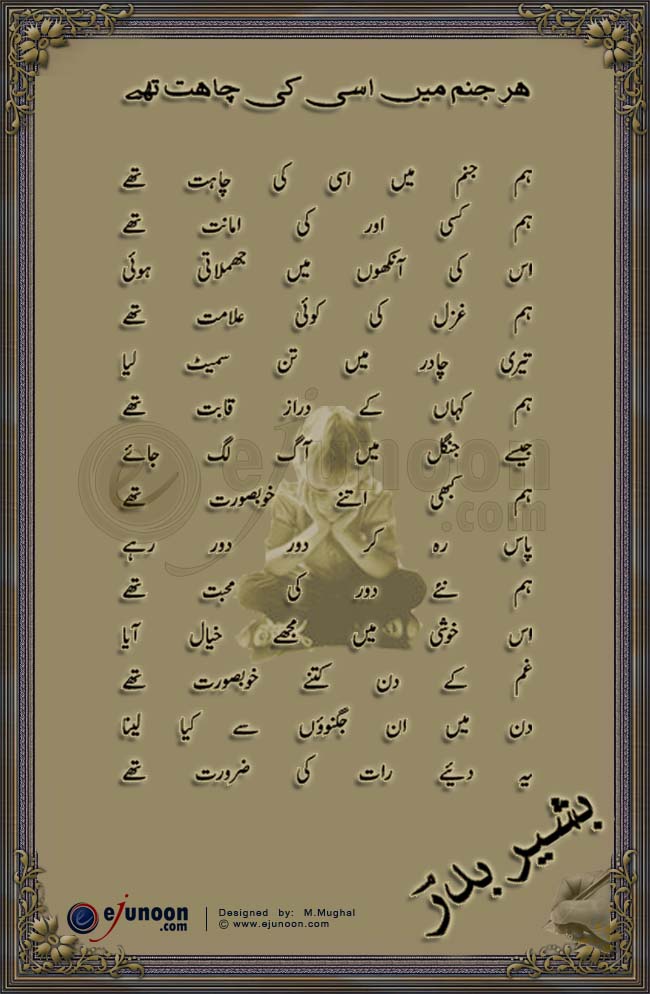 ھر جنم میں اسی کی چاھت تھے
ہم جنم میں اسی کی چاہت تھے
ہم کسی اور کی امانت تھے
اس کی آنکھوں میں جھملاتی ہوئی
ہم غزل کی کوئی علامت تھے
تیری چادر میں تن سمیٹ لیا
ہم کہاں کے دراز قابت تھے
جیسے جنگل میں آگ لگ جائے
ہم کبھی اتنے خوبصورت تھے
پاس رہ کر دور دور رہے
ہم نئے دور کی محبت تھے
اس خوشی میں مجھے خیال آیا
غم کے دن کتنے خوبصورت تھے
دن میں ان جگنوؤں سے کیا لینا
یہ دئیے رات کی ضرورت تھے
بشیر بدر
ejunoon.com
ejunoon.com
Designed by: M.Mughal
© www.ejunoon.com